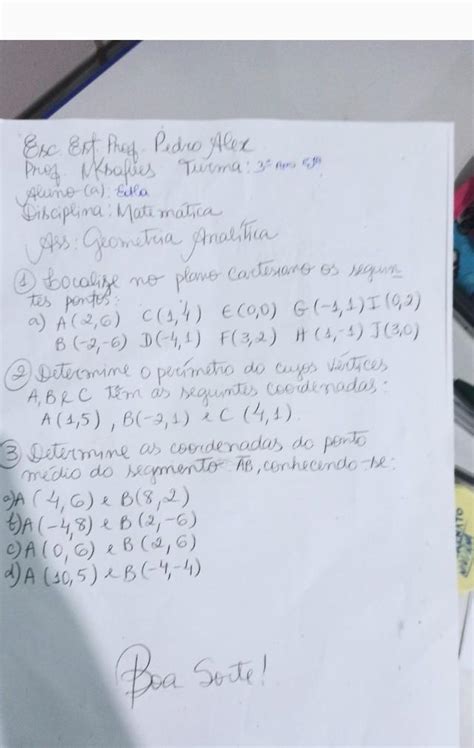 Esc. Est. Prof. Pedro Alex
Prof Turma: 3º Ano EJA
Aluno (a): Edla
Disciplina: Matematica
Ass: Geometria Analítica
① Localize no plano cartesiano os seguin
tes pontos:
a) A(2,6) C(1,4) E(0,0) G(-1,1) I(0,2)
B(-2,-6) D(-4,1) F(3,2) H(1,-1) J(3,0)
② Determine o perímetro do cujos vértices
A, B e C têm as seguintes coordenadas:
A(1,5), B(-2,1) e C(4,1).
③ Determine as coordenadas do ponto
médio do segmento AB, conhecendo-se:
a) A(4,6) e B(8,2)
b) A(-4,8) e B(2,-6)
c) A(0,6) e B(2,6)
d) A(10,5) e B(-4,-4)
Boa Sorte!